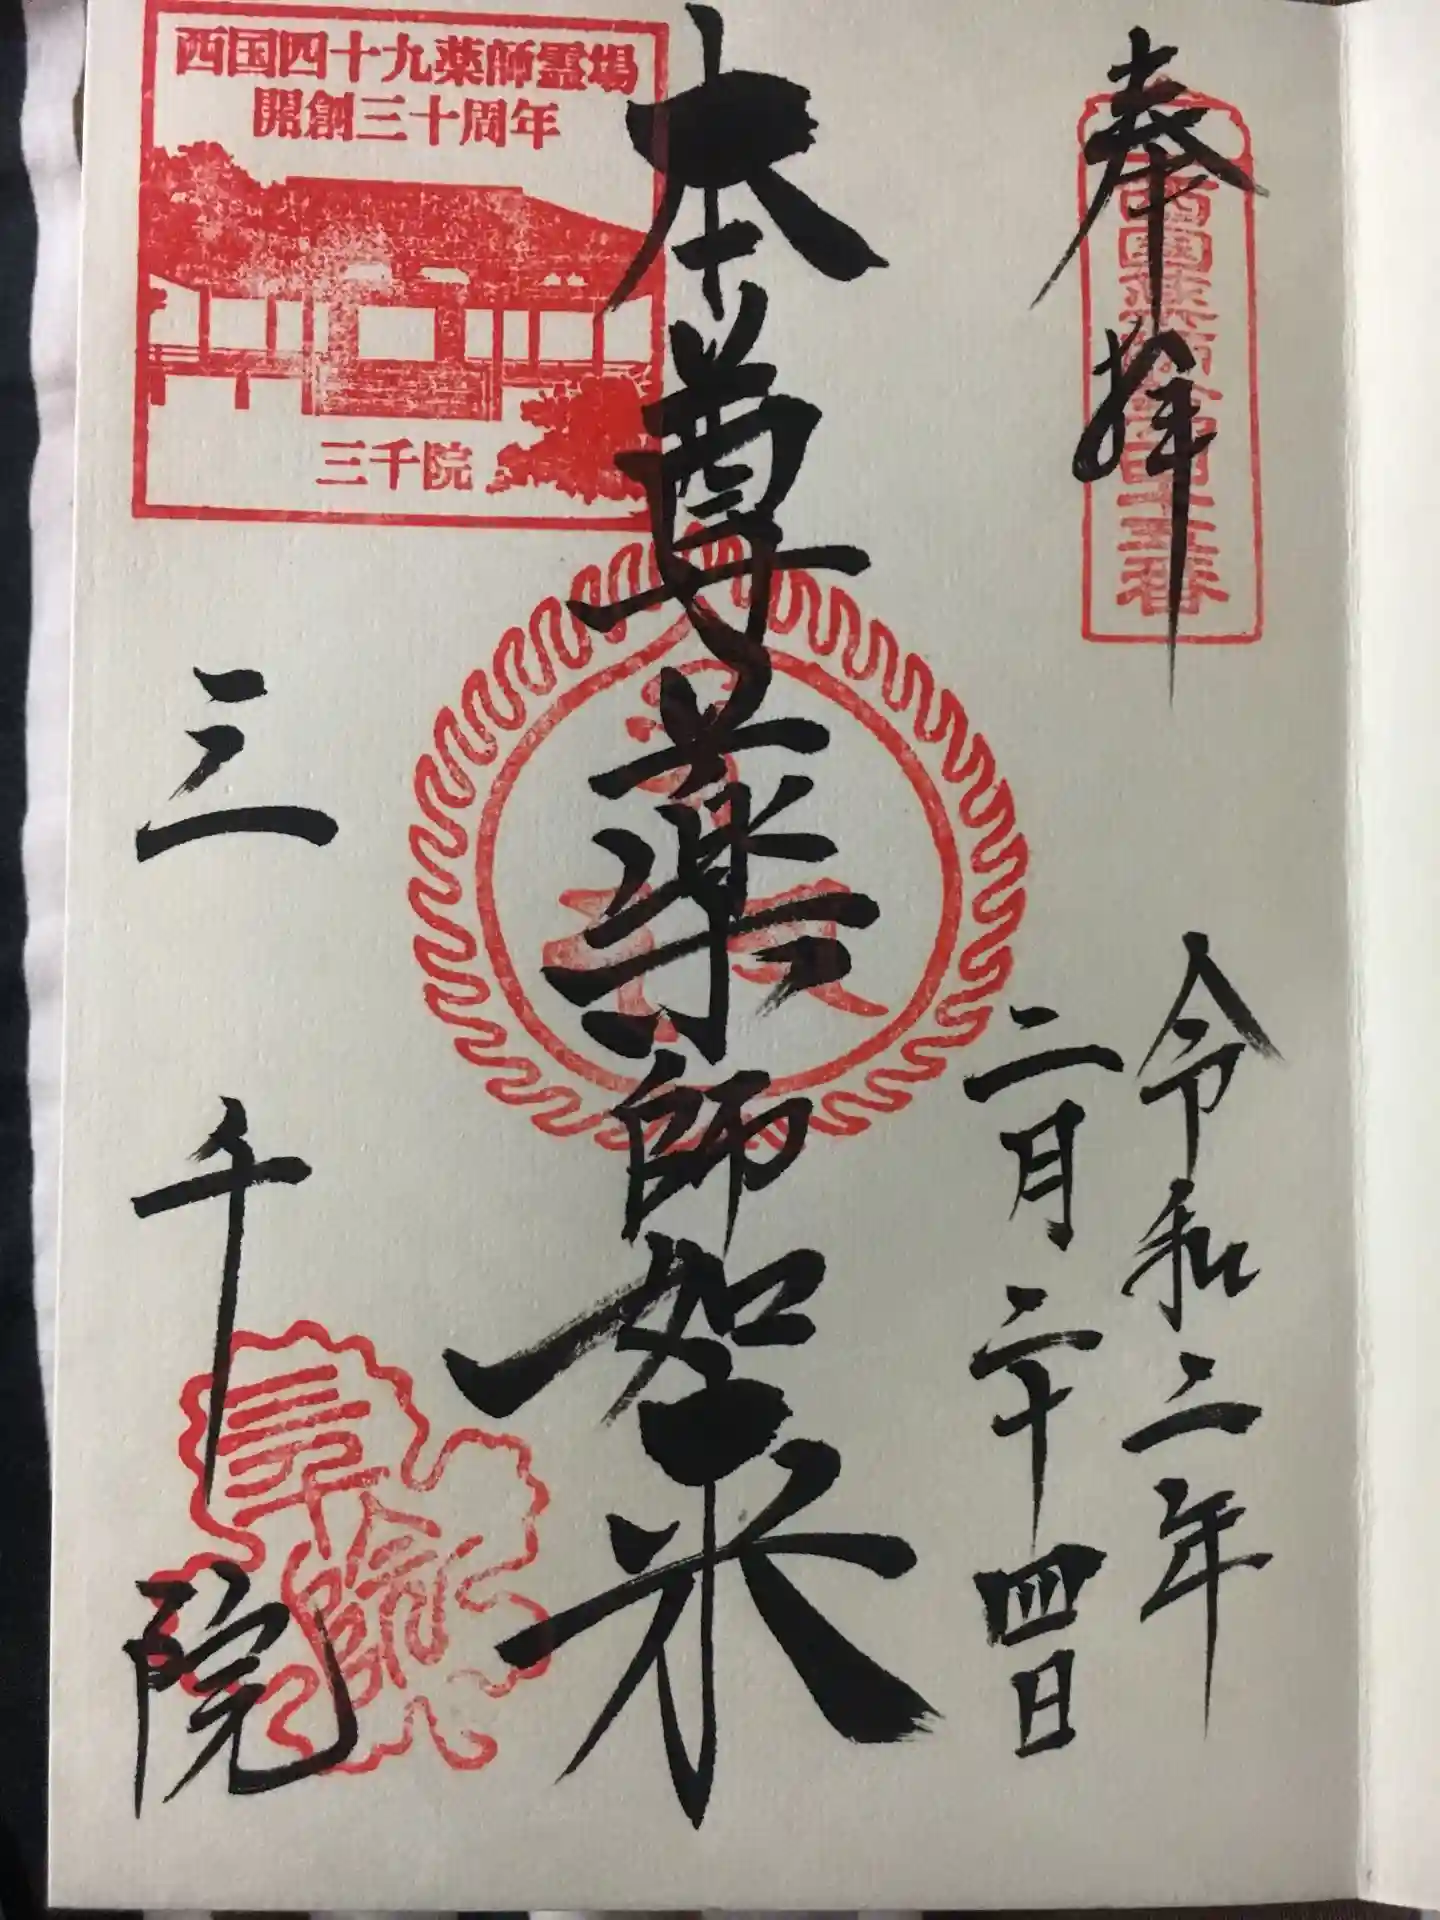 奉拝
西国薬師第四十五番
令和二年
二月二十四日
本尊薬師如来
西国四十九薬師霊場
開創三十周年
三千院
三千院